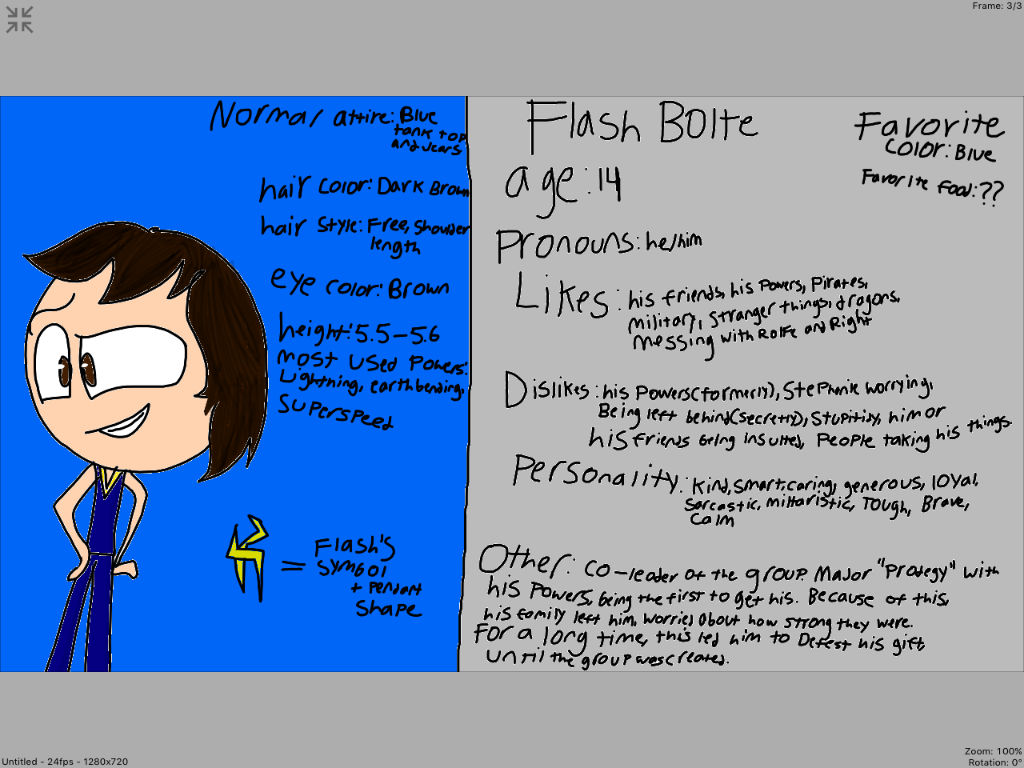 Frame: 3/3
Normal attire: Blue
tank top
and jeans
hair color: Dark Brown
hair style: Free, Shoulder
length
eye color: Brown
height: 5.5-5.6
most used Powers:
Lightning, earthbending,
Superspeed
= Flash's
symbol
+ Pendant
Shape
Flash Bolte
age: 14
Pronouns: he/him
Likes: his friends, his Powers, Pirates,
military, Stranger things, dragons,
messing with Rolfe and Right
Dislikes: his Powers(formerly), Stephanie worrying,
Being left behind(secretly), Stupitidy, him or
his friends being insulted, People taking his things
Personality: Kind, smart, caring, generous, loyal,
Sarcastic, militaristic, Tough, Brave,
Calm
Other: Co-leader of the group. Major "Prodegy" with
his Powers, being the first to get his. Because of this,
his family left him, worried about how strong they were.
For a long time, this led him to Detest his gift
until the group was created.
Favorite
color: Blue
Favorite food: ??
Untitled - 24fps - 1280x720
Zoom: 100%
Rotation: 0°